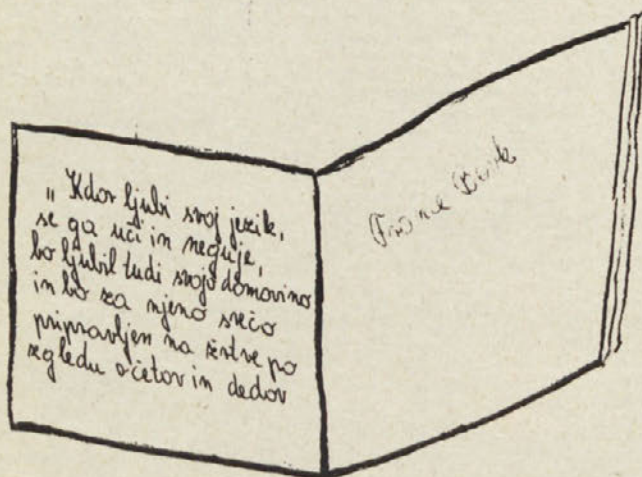 „Kdor ljubi svoj jezik,
se ga uči in neguje,
bo ljubil tudi svojo domovino
in bo za njeno srečo
pripravljen na žrtve po
zgledu očetov in dedov
France Bevk